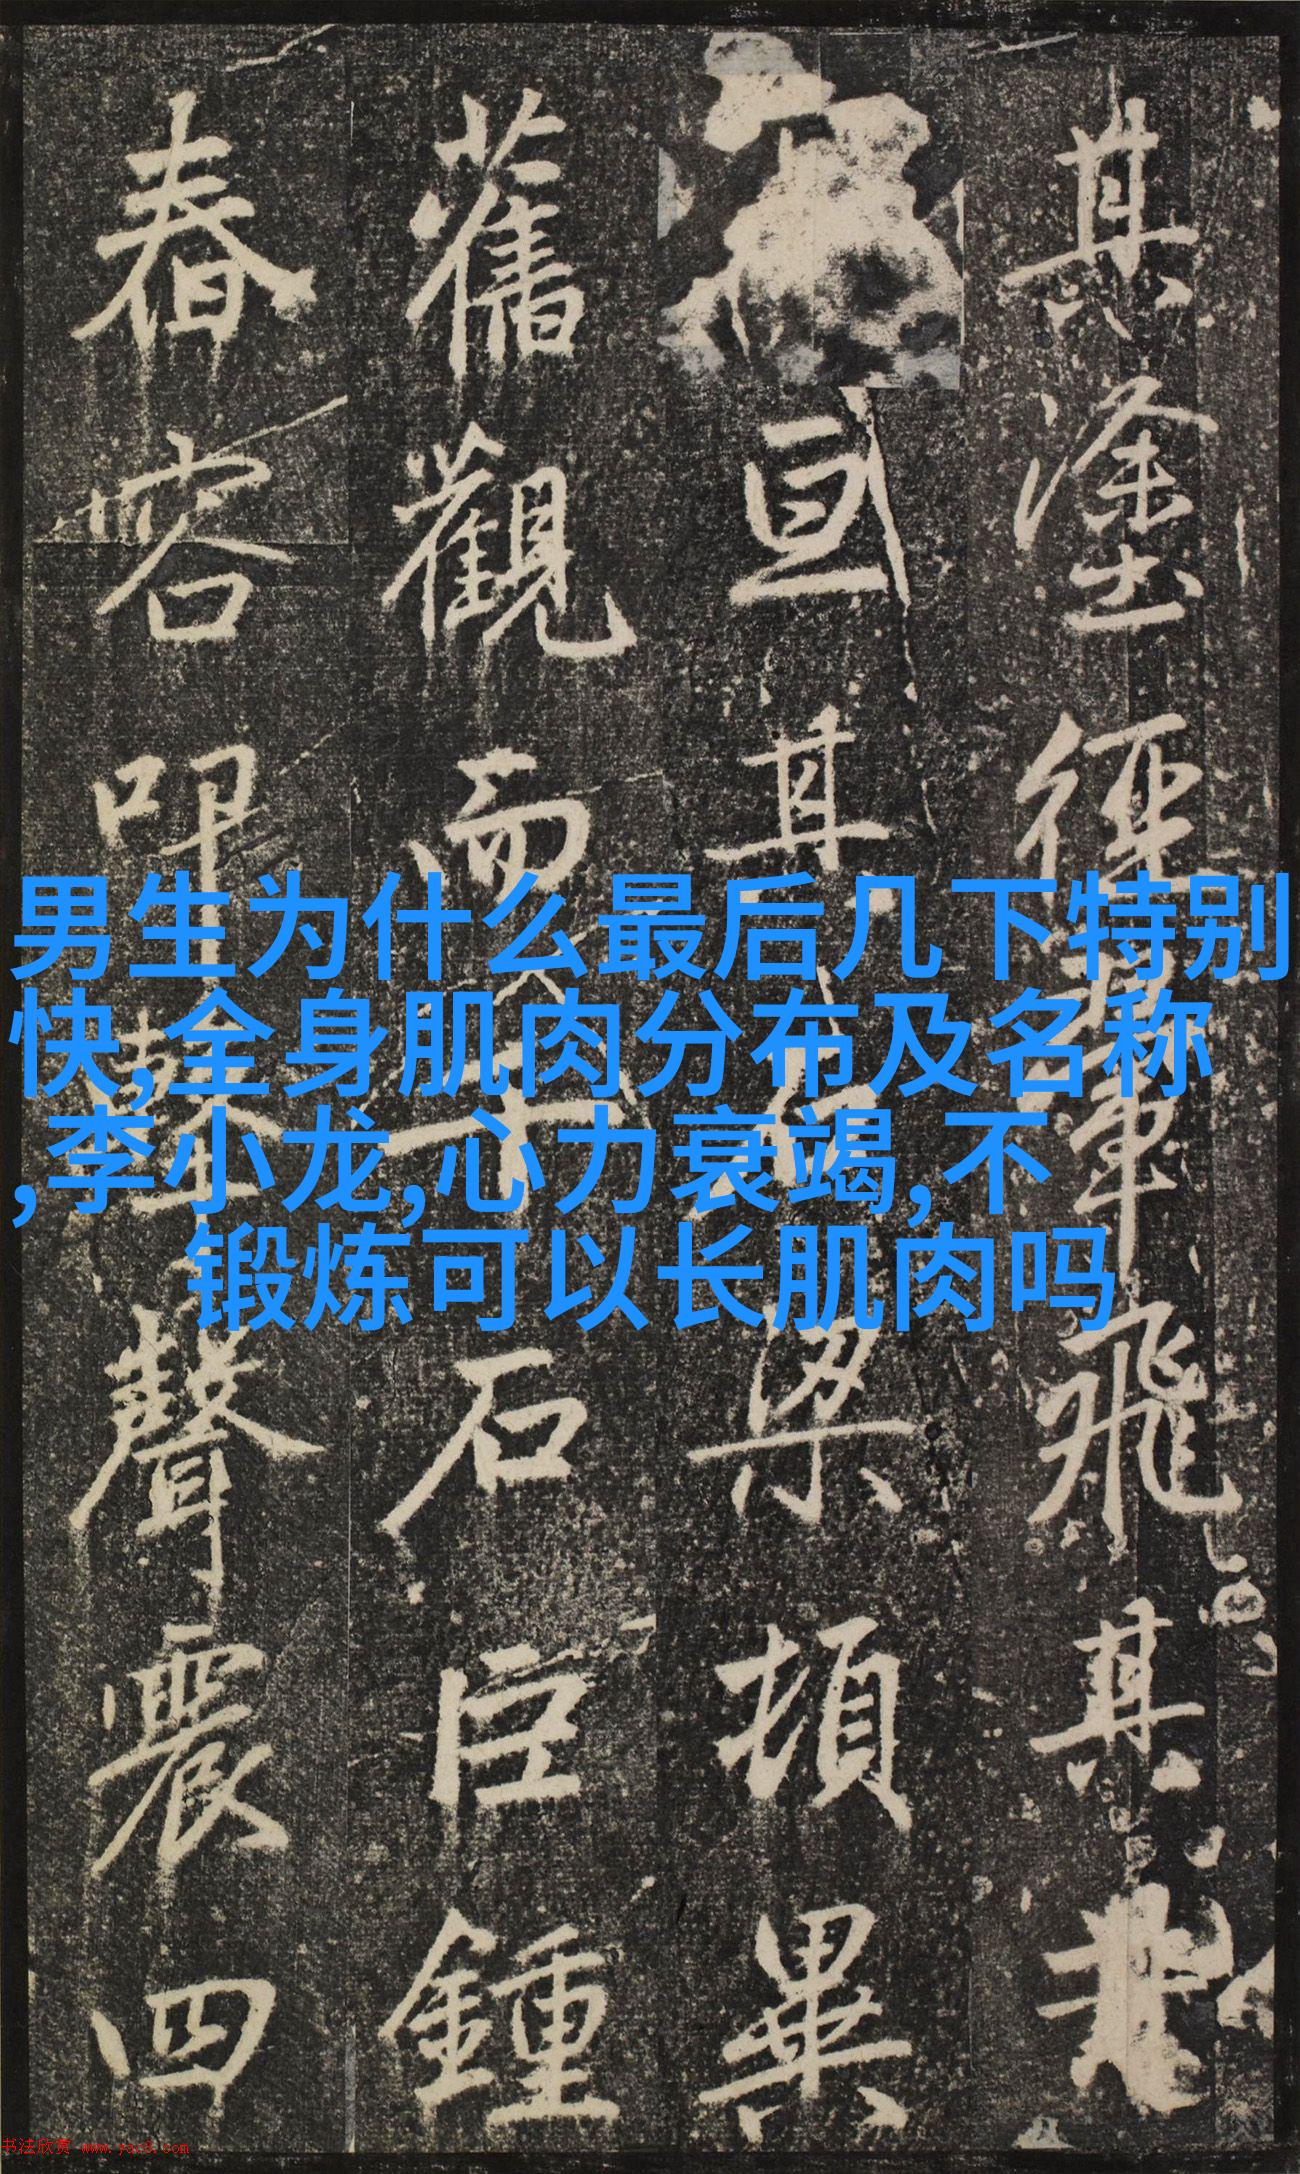 其塗呈經千飛其
亘其梁頓畢
舊觀而千石巨鍾
春容叩擊聲震四
男生为什么最后几下特别
快,全身肌肉分布及名称
,李小龙,心力衰竭,不
锻炼可以长肌肉吗
书法欣赏 www.yac8.com